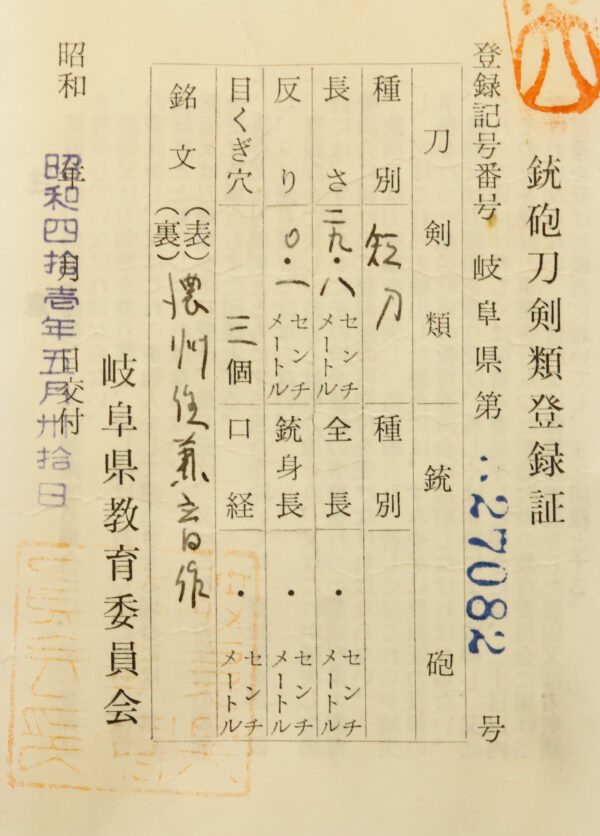 銃砲刀剣類登録証
登録記号番号 岐阜県第 27082 号
刀剣類 銃砲
種別 短刀 種別
長さ 二九・八 センチメートル 全長 ・ センチメートル
反り 〇・一 センチメートル 銃身長 ・ センチメートル
目くぎ穴 三個 口経 ・ センチメートル
銘文 (表) 濃州住兼音作
(裏)
岐阜県教育委員会
昭和 年 月 日交付
昭和四拾壱年五月卅拾日